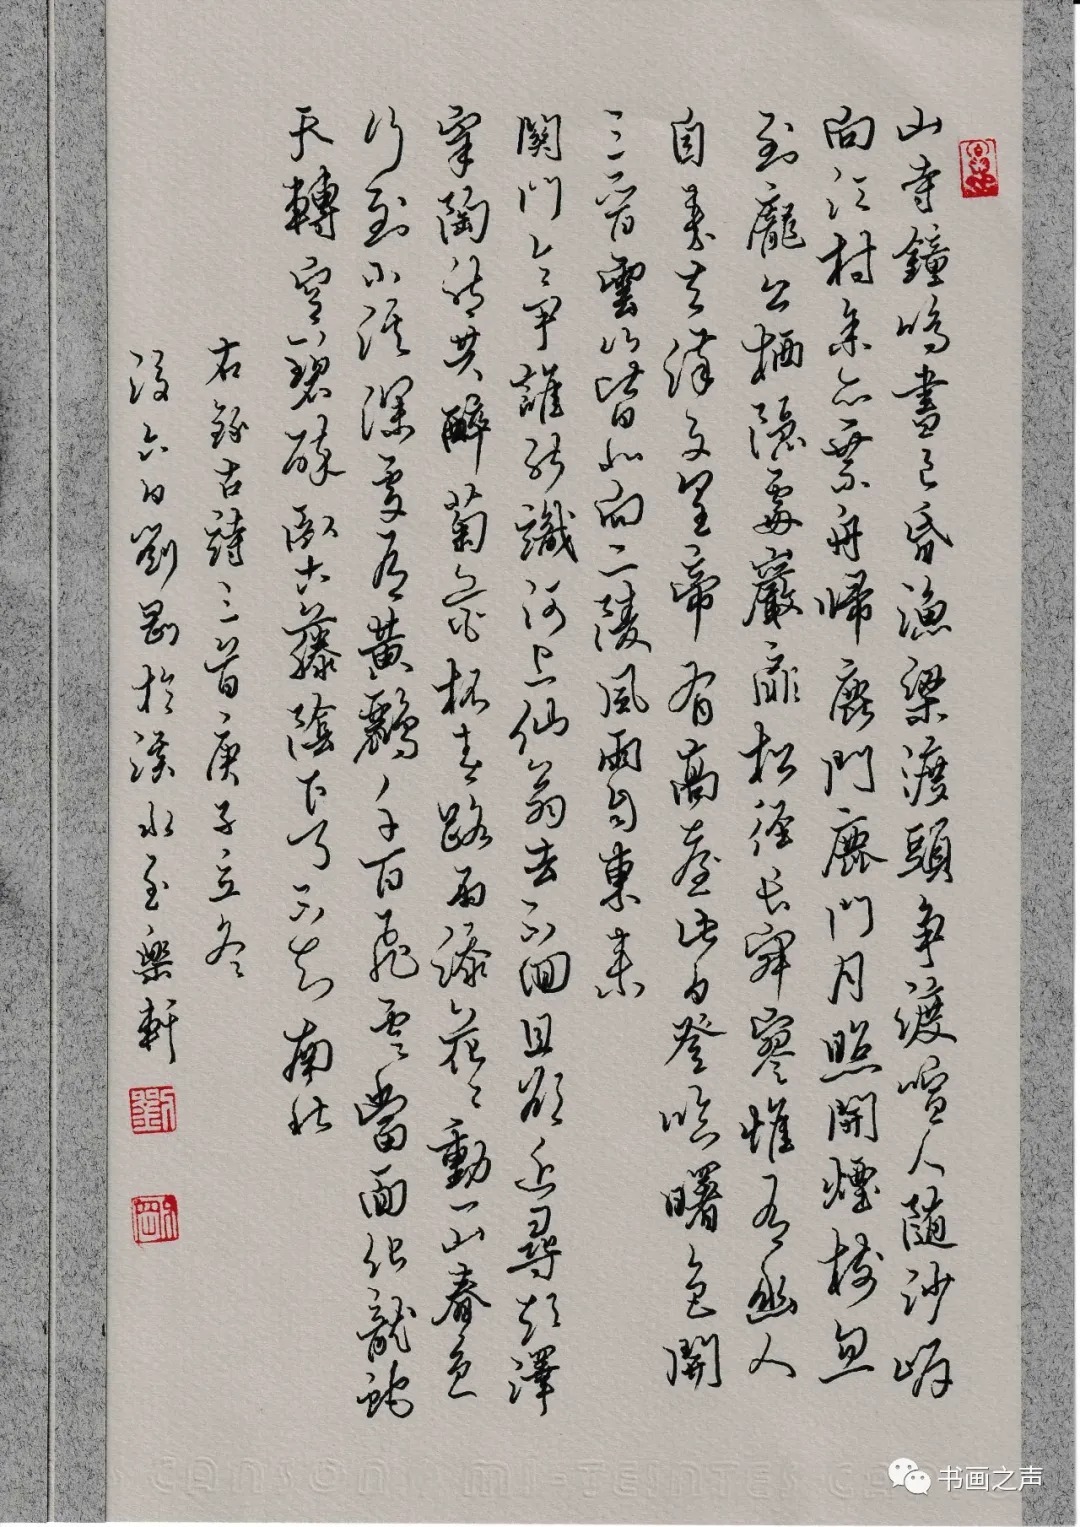 山寺鐘鳴晝已昏漁梁渡頭争渡喧人隨沙岸
向江村余亦乘舟歸鹿門鹿門月照開煙樹忽
到龐公栖隱處巖扉松徑長寂寥惟有幽人
自來去漢文皇帝有高臺此日登臨曙色開
三晉雲山皆北向二陵風雨自東來
關門令尹誰能識河上仙翁去不回且欲近尋彭澤
宰陶然共醉菊花杯春路雨添花々動一山春色
行到小溪深處有黃鸝千百飛雲當面化龍蛇
天轉空碧醉臥古藤陰下了不知南北
右錄古詩三首庚子立冬
後六日劉剛於水至樂軒
劉
剛
CANSON MI-TEINTES CA
书画之声